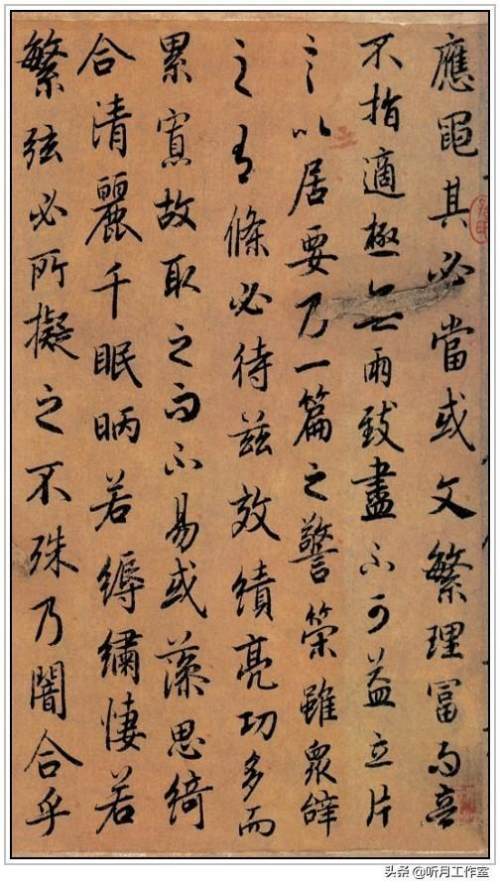 應黽其必當或文繁理冨而意
不指適極無兩致盡不可益立片
言以居要乃一篇之警策雖眾辝
之有條必待茲效績亮功多而
累寡故取之而不易或藻思綺
合清麗千眠昞若縟繡悽若
繁弦必所擬之不殊乃闇合乎
头条 @听月工作室